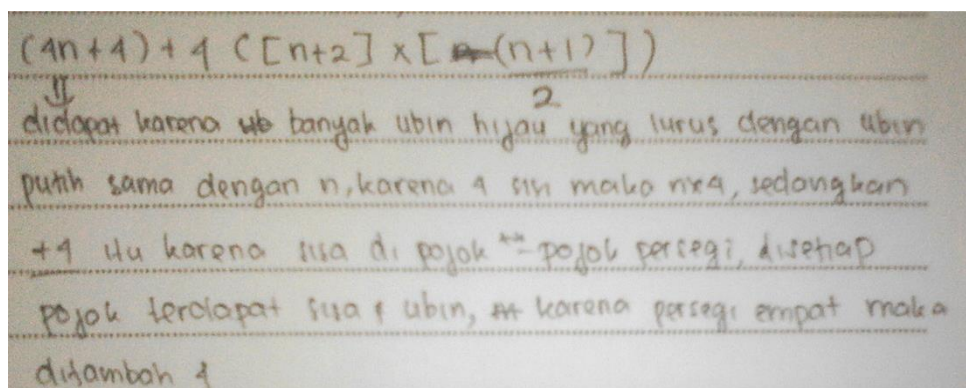 (4n+4) + 4 ([n+2] × [(n+1)])
2
didapat karena banyak ubin hijau yang lurus dengan ubin
putih sama dengan n, karena 4 sisi maka n×4, sedangkan
+4 itu karena sisa di pojok - pojok persegi, disetiap
pojok terdapat sisa 1 ubin, karena persegi empat maka
ditambah 4